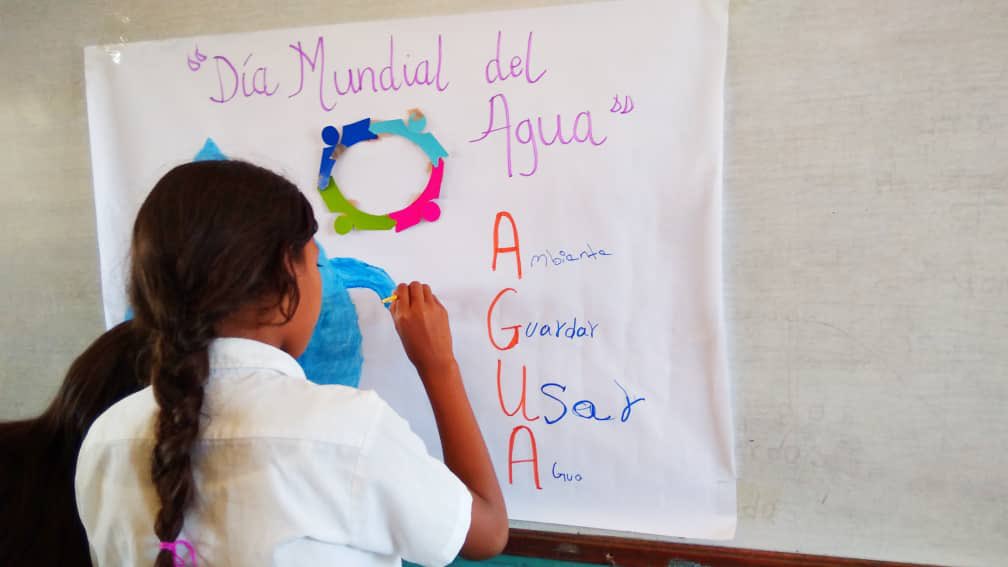 "Día Mundial del
Agua"
Ambiente
Guardar
Usar
Agua